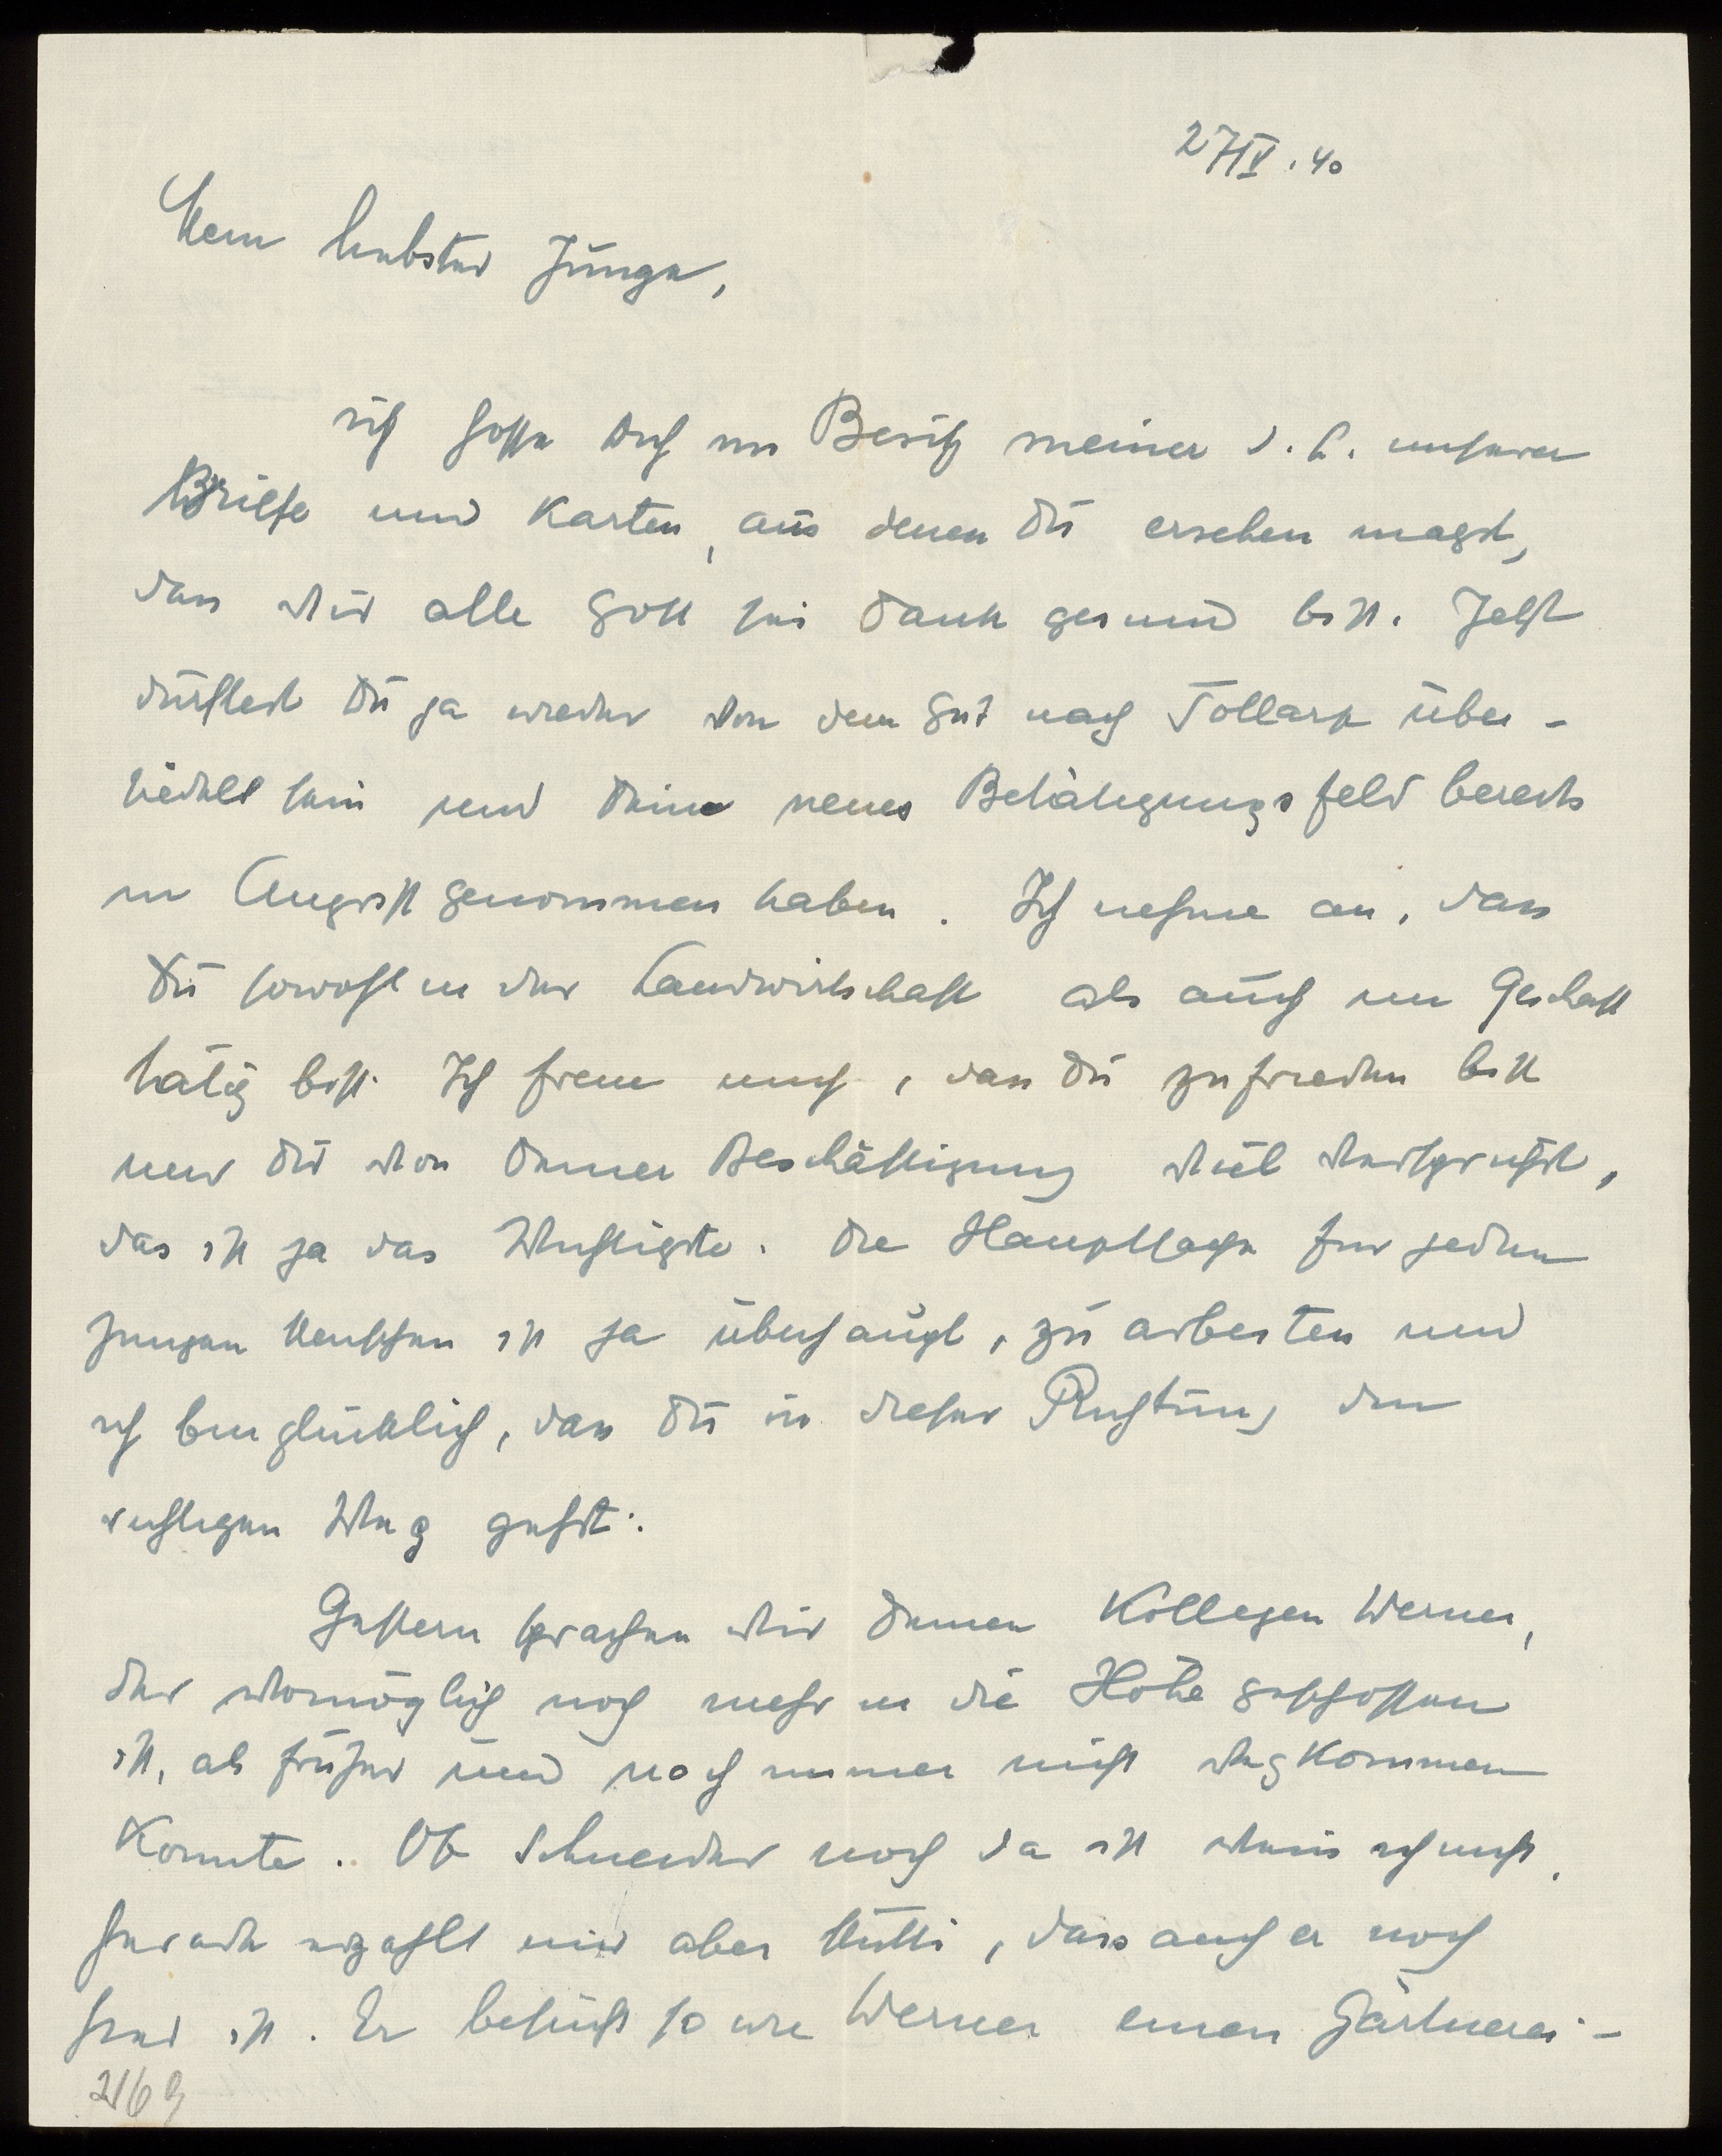 27/IV.40
Mein liebster Junge,
ich hoffe Dich im Besitz meiner d.h. unserer
Briefe und Karten, aus denen Du ersehen magst,
dass wir alle Gott sei Dank gesund bist. Jetzt
dürftest Du ja wieder von dem Gut nach Tollarp über-
siedelt sein und Deine neues Betätigungsfeld bereits
in Angriff genommen haben. Ich nehme an, dass
Du sowohl in der Landwirtschaft als auch im Geschäft
tätig bist. Ich freue mich, dass Du zufrieden bist
und Dir von Deiner Beschäftigung viel versprichst,
das ist ja das Wichtigste. Die Hauptsache für jeden
jungen Menschen ist ja überhaupt, zu arbeiten und
ich bin glücklich, dass Du in dieser Richtung den
richtigen Weg gehst.
Gestern sprachen wir Deinen Kollegen Werner,
der womöglich noch mehr in die Höhe geschossen
ist, als früher und noch immer nicht wegkommen
konnte. Ob Schneider noch da ist weiss ich nicht.
Gerade erzählt mir aber Mutti, dass auch er noch
hier ist. Er besucht so wie Werner einen Gärtnerei-
2169